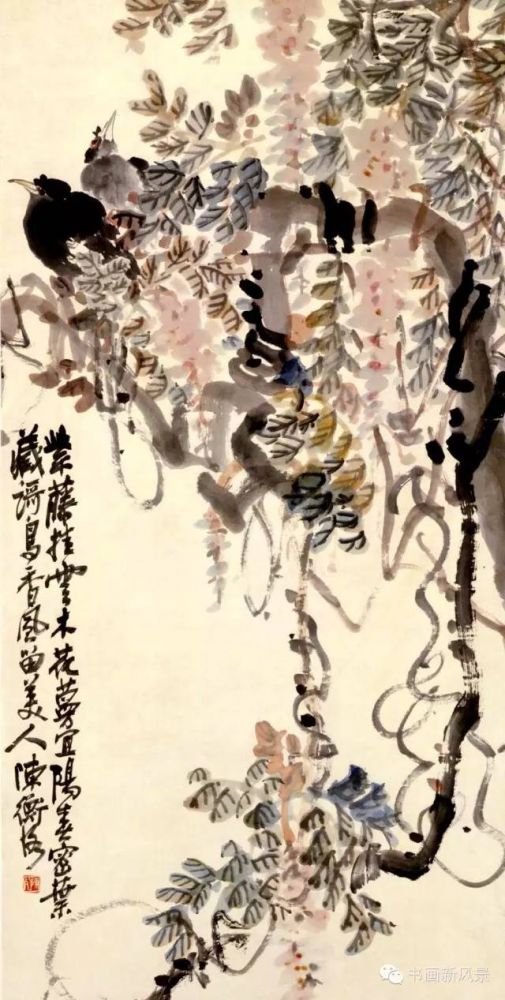 紫藤挂雲木花蔓宜陽春密葉
藏謌鳥香風留美人 陳衡恪
书画新风景